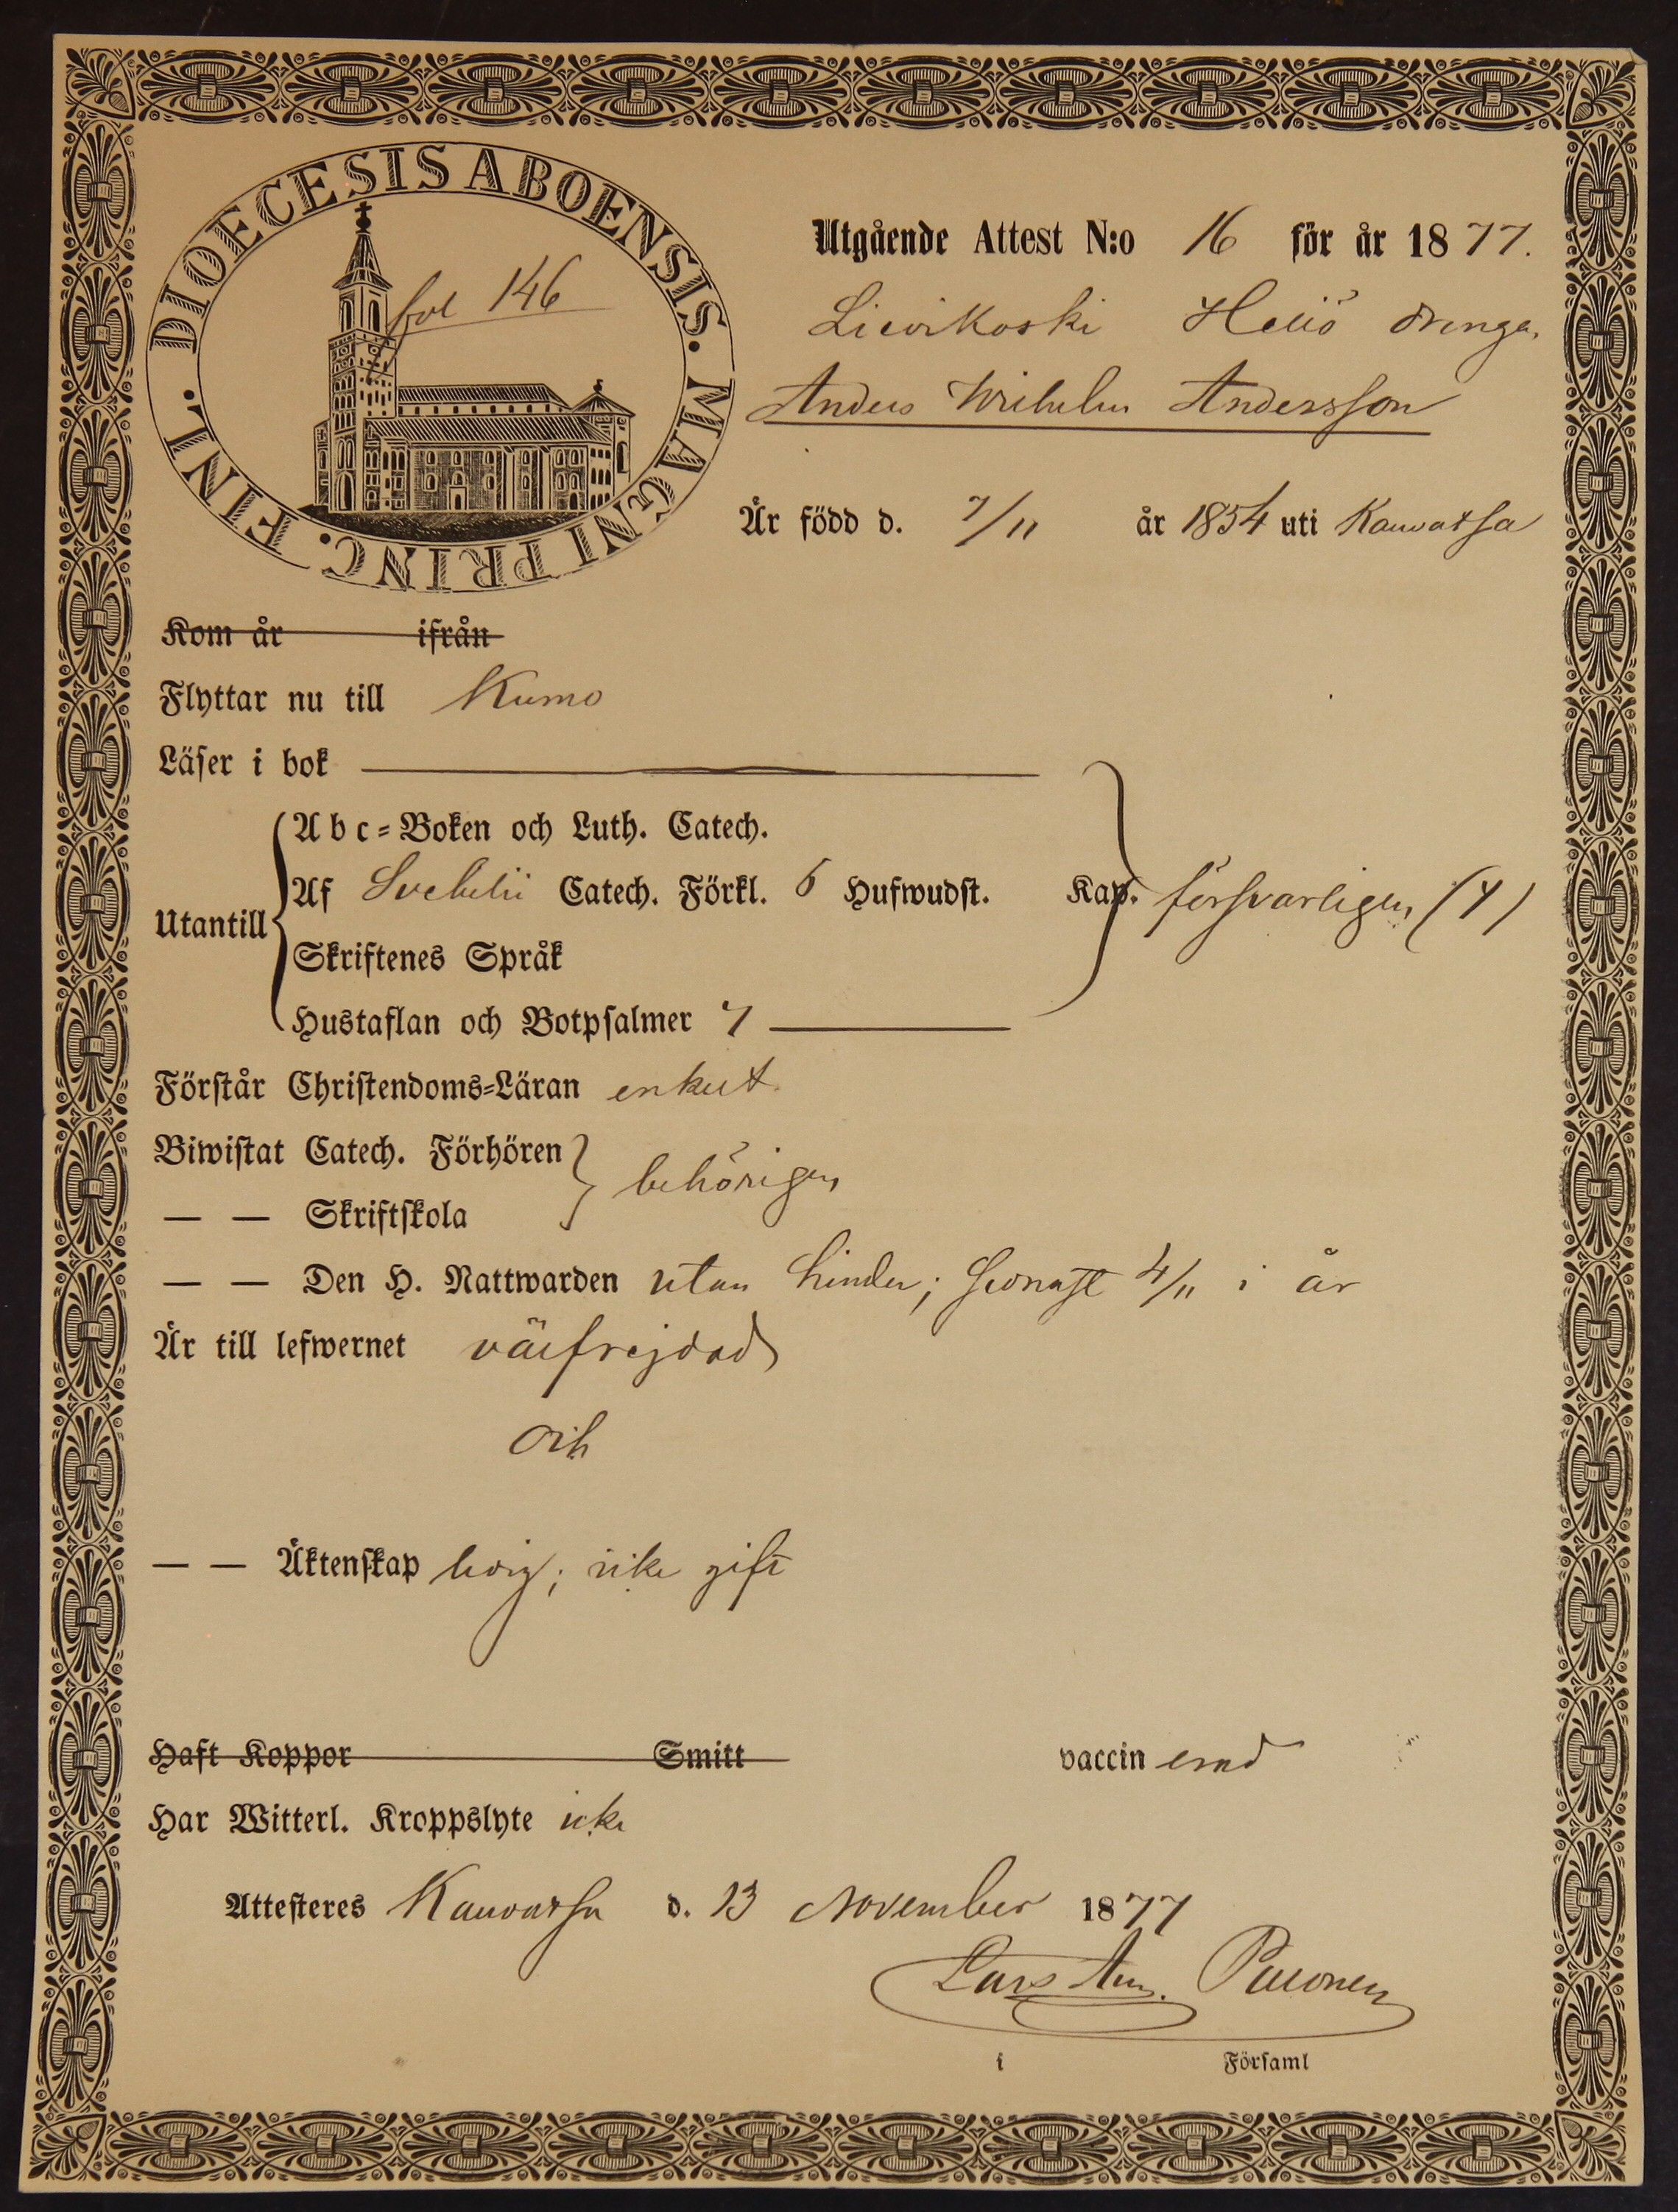 DIOECESIS ABOENSIS. MAGNI PRINC. FINL.
fol 146
Utgående Attest N:o 16 för år 1877.
Lievikoski Heliö drengen
Anders Wilhelm Andersson
Är född d. 7/11 år 1854 uti Kauvatsa
Kom år ifrån
Flyttar nu till Kumo
Läser i bok
Utantill
Abc-Boken och Luth. Catech.
Af Svebelii Catech. Förkl. 6 Hufwudst. Kap. försvarligen (4)
Skriftenes Språk
Hustaflan och Botpsalmer 7
Förstår Christendoms-Läran enkelt
Biwistat Catech. Förhören
behörigen
— — Skriftskola
— — Den H. Nattwarden utan hinder; senast 4/11 i år
Är till lefwernet välfrejdad
och
— — Äktenskap ledig; icke gift
Haft Koppor Smitt vaccinerad
Har Witterl. Kroppslyte icke
Attesteres Kauvatsa d. 13 November 1877
Lars
i Församl